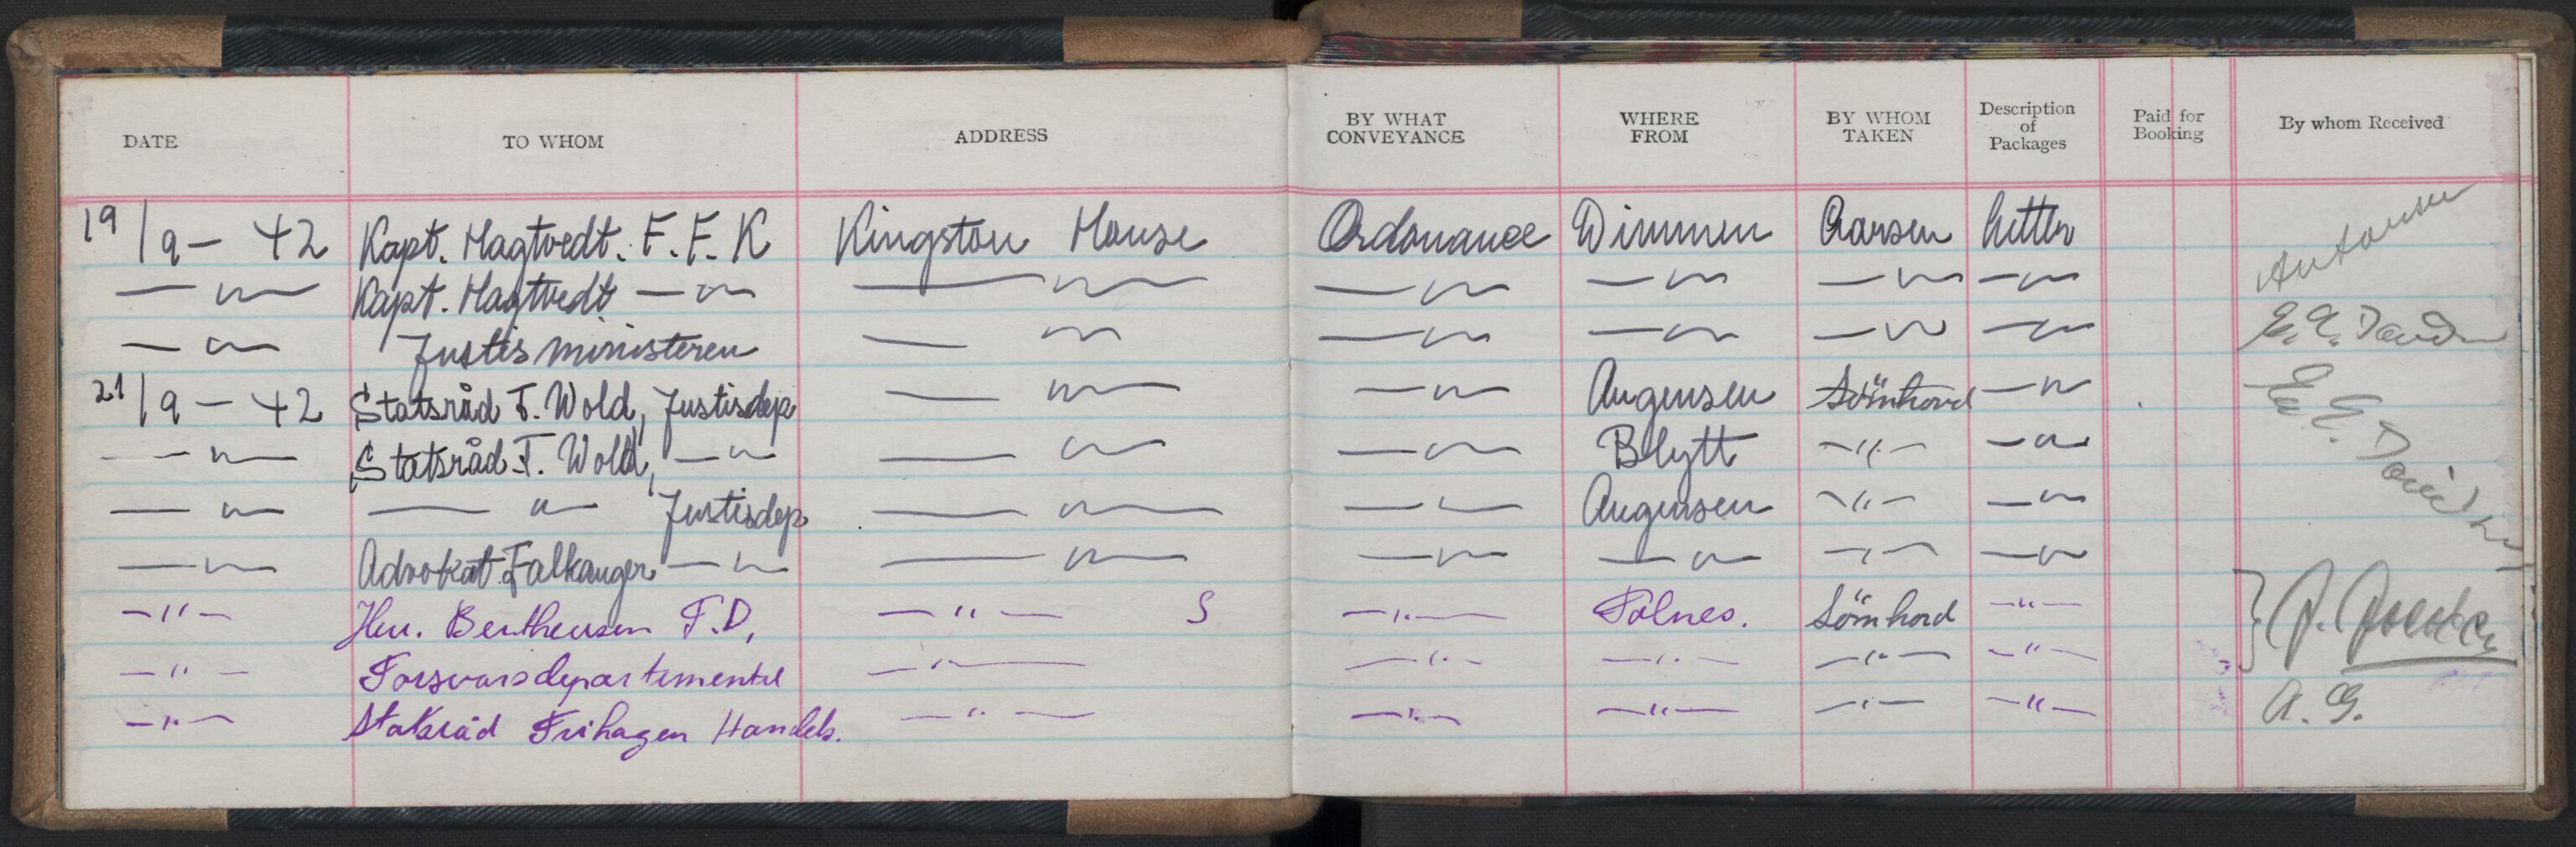 DATE TO WHOM ADDRESS BY WHAT CONVEYANCE WHERE FROM BY WHOM TAKEN Description of Packages Paid for Booking By whom Received
19/9 - 42 Kapt. Hagtvedt. F.F.K Kingston House Ordonance Dimmen Aarsen Antonsen
— " — Kapt. Hagtvedt — " — — " — — " — — " — — " — — " —
— " — Justisministeren — " — — " — — " — — " — — " —
21/9 - 42 Statsråd T. Wold, Justisdep — " — — " — Augensen Sömhovd — " —
— " — Statsråd T. Wold, — " — — " — — " — Blytt — " — — " —
— " — — " — Justisdep — " — — " — Augensen — " — — " —
— " — Advokat Falkanger — " — — " — — " — — " — — " — — " —
— " — Hr. Bertheusen F.D, — " — S — " — Tolnes. Sömhovd — " —
— " — Forsvarsdepartementet — " — — " — — " — — " — — " —
— " — Statsråd Frihagen Handels. — " — — " — — " — — " — — " — A. G.